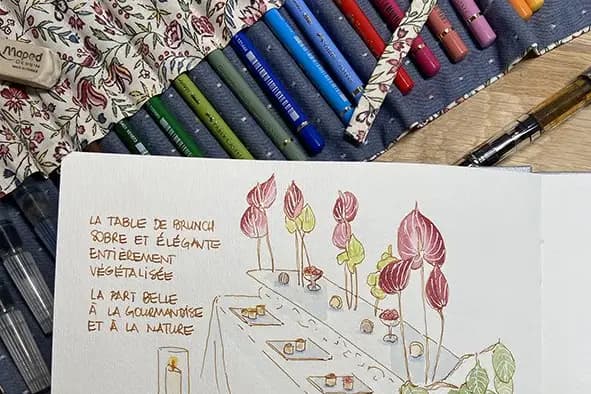 Maped
LA TABLE DE BRUNCH
SOBRE ET ÉLÉGANTE
ENTIÈREMENT
VÉGÉTALISÉE
LA PART BELLE
À LA GOURMANDISE
ET À LA NATURE